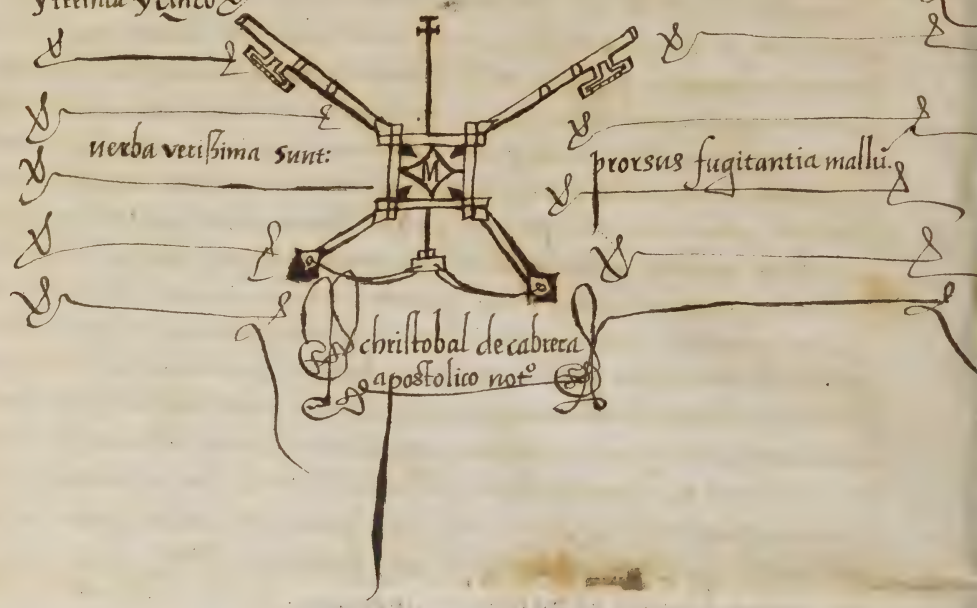 y treinta y çinco
uerba verißima sunt:
M
prorsus fugitantia mallũ.
christobal de cabrera
apostolico notº